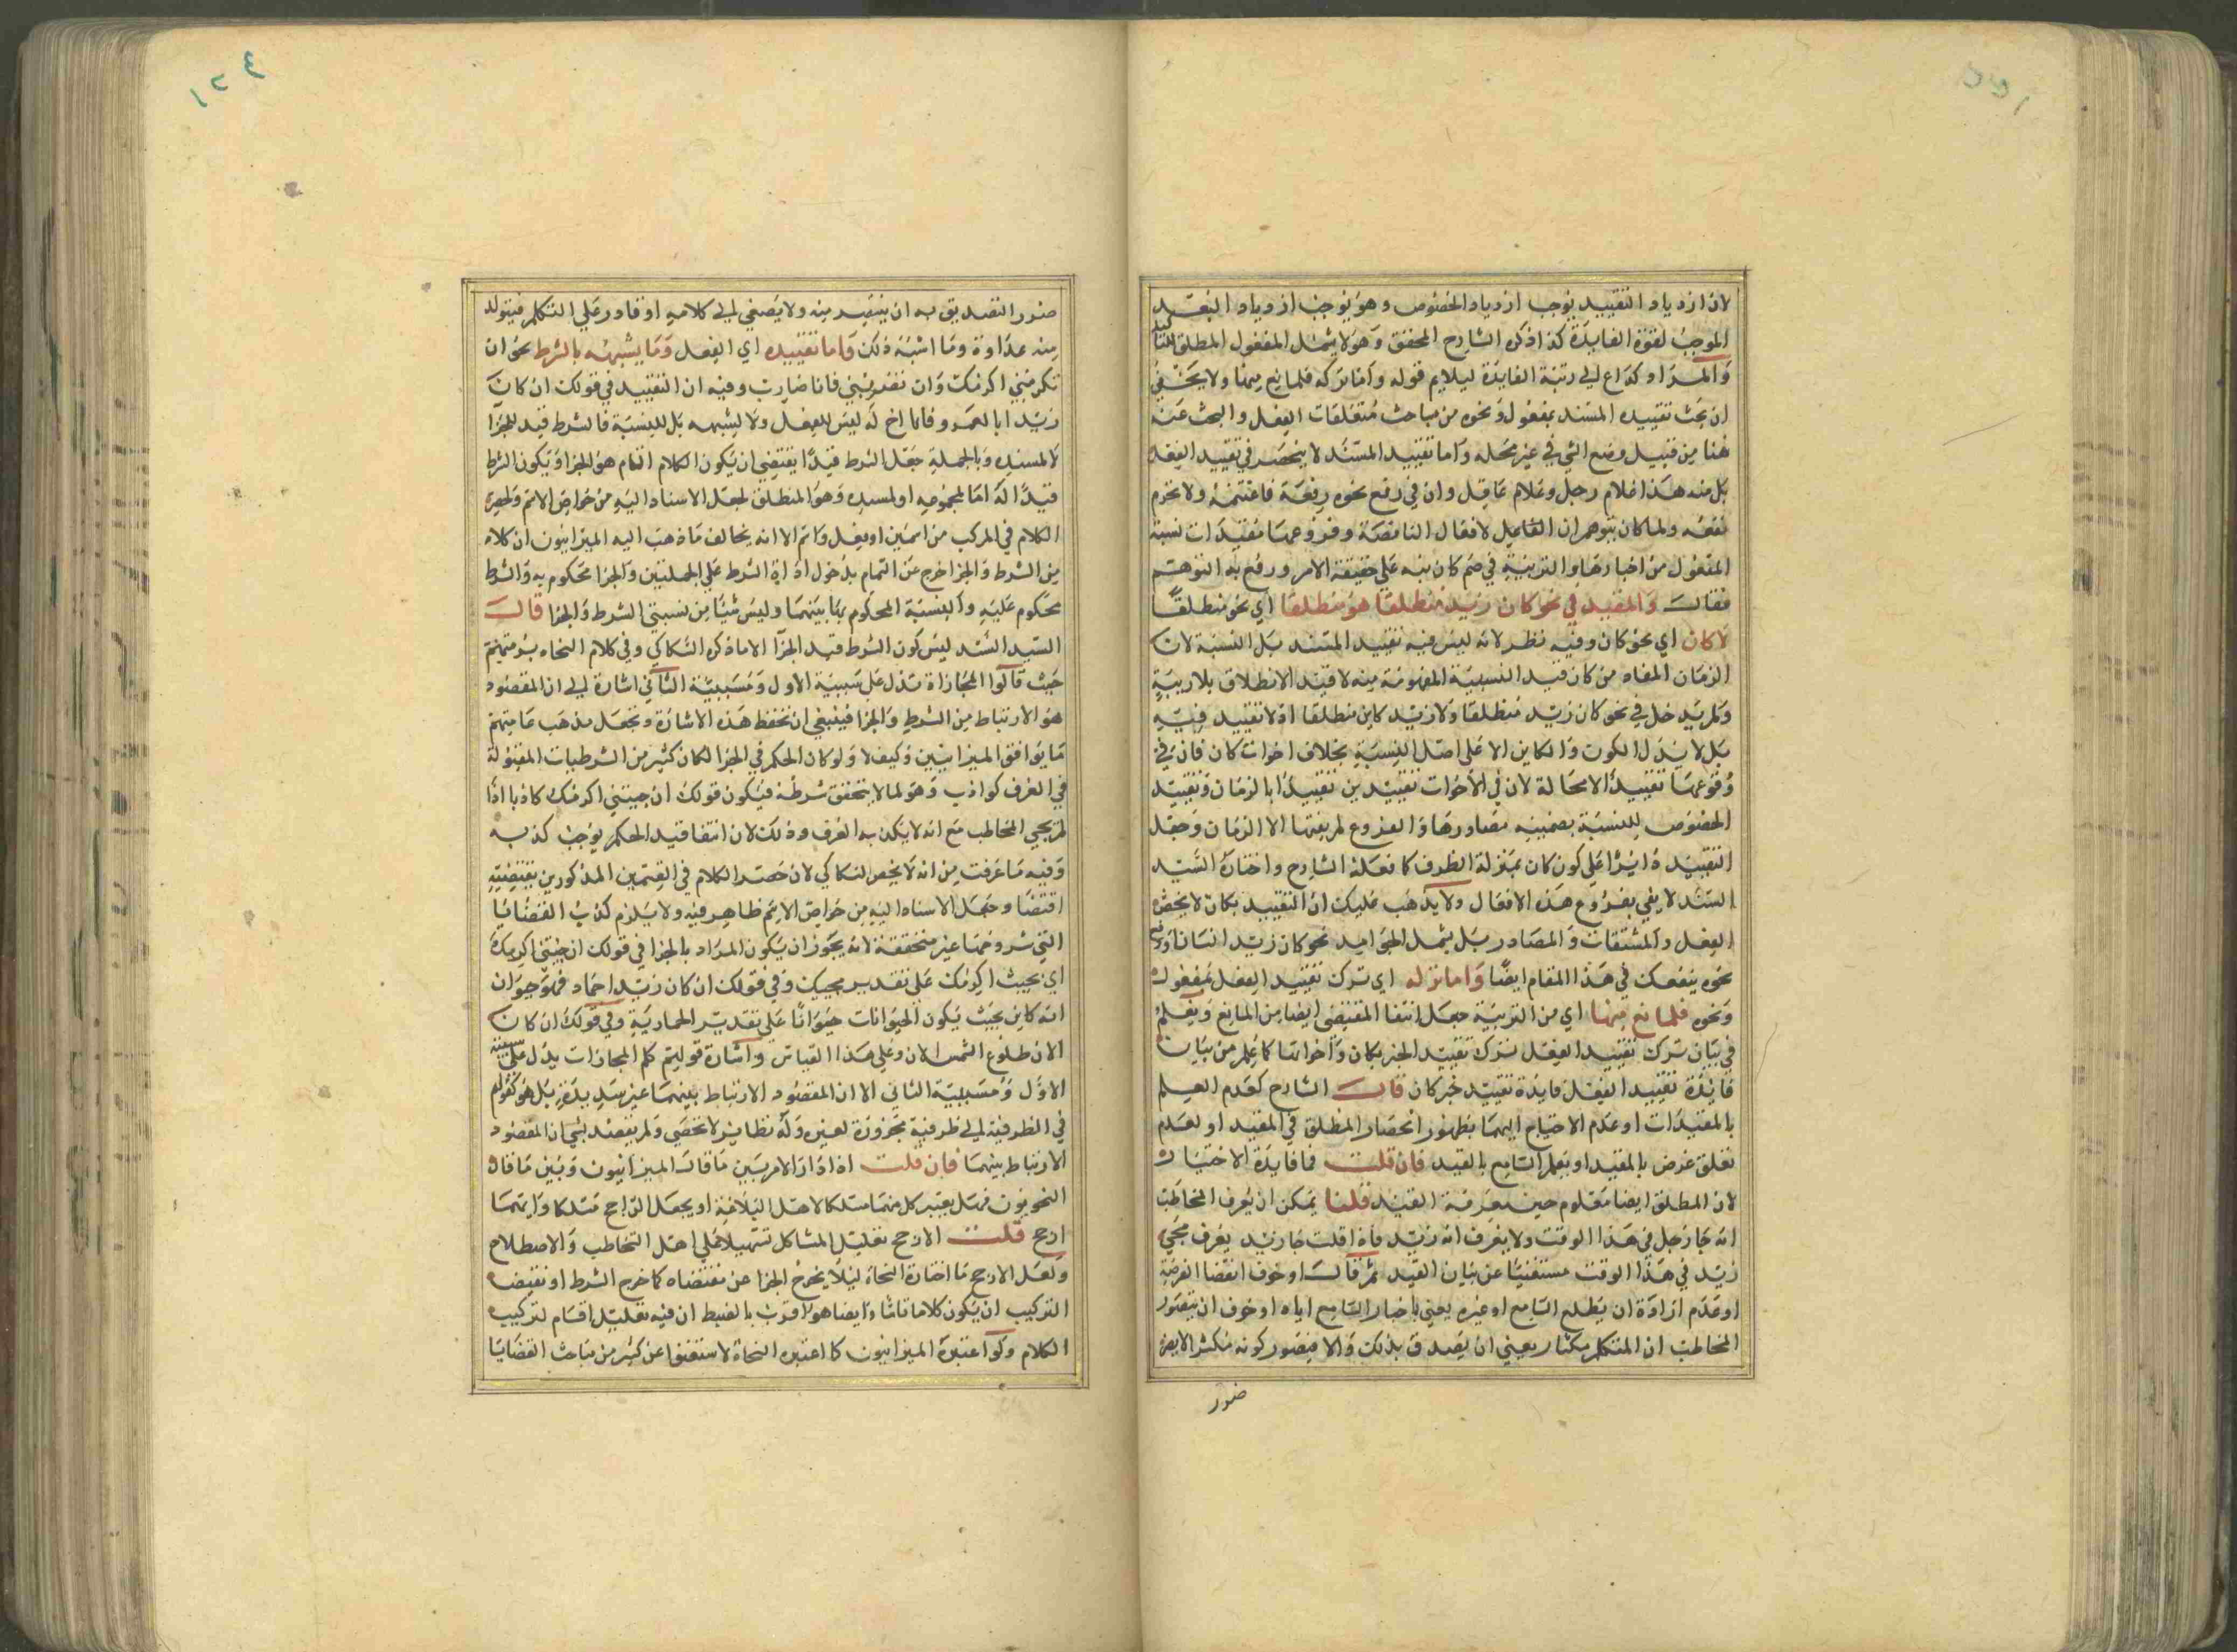 لان ازدياد التقييد يوجب ازدياد الخصوص وهو يوجب ازدياد البعد
الموجب لقوة الفايدة كذا ذكره الشارح المحقق وهو لا يشمل المفعول المطلق
والمراد كداع الى رتبة الفايدة ليلايم قوله واما تركه فلمانع منها ولا يخفى
ان بحث تقييد المسند بمفعول ونحوه من مباحث متعلقات الفعل والبحث عنه
هنا من قبيل وضع الشي في غير محله واما تقييد المسند لا ينحصر في تقييد الفعل
بل منه هذا غلام رجل وغلام عاقل وان في رفع نحوه رفعة فاغتنمه ولا تحرم
نفعه ولما كان يتوهم ان الفاعيل لافعال الناقصة وفروعها مقيدات لنسبة
المفعول من اخبارها والتربية في ضم كان نبه على حقيقة الامر ورفع به التوهم
فقال والمقيد في نحو كان زيد منطلقا هو منطلقا اي نحو منطلقا
لا كان اي نحو كان وفيه نظر لانه ليس فيه تقييد المسند بل النسبة لان
الزمان المفاد من كان قيد النسبة المفهومة منه لا قيد الانطلاق بلا ريبة
ولم يدخل في نحو كان زيد منطلقا ولا زيد كاين منطلقا اذ لا تقييد فيه
بل لا يدل الكون والكاين الا على اصل النسبة بخلاف اخوات كان فان في
وقوعها تقييدا لا محالة لان في الاخوات تقييدين تقييدا بالزمان وتقييد
الخصوص للنسبة بصمينه مصادرها والفروع لم يفتها الا الزمان وجعل
التقييد دايرا على كون كان بمنزلة الظرف كما فعله الشارح واختاره السيد
السند لا يفي بفروع هذه الافعال ولا يذهب عليك ان التقييد بكان لا يخص
الفعل والمشتقات والمصادر بل يشمل الجوامد نحو كان زيد انسانا
نحوه ينفعك في هذا المقام ايضا واما تركه اي ترك تقييد الفعل بمفعول
ونحوه فلمانع منها اي من التربية جعل انتفا المقتضى ايضا من المانع ويعلم
في بيان ترك تقييد الفعل ترك تقييد الخبر بكان واخواتها كما يعلم من بيان
فائدة تقييد الفعل فايدة تقييد خبر كان قال الشارح كعدم العلم
بالمقيدات او عدم الاحتياج اليها بظهور انحصار المطلق في المقيد او لعدم
تعلق غرض بالمقيد او بعلم السامع بالقيد فان قلت فما فايدة الاخبار
لان المطلق ايضا معلوم حين معرفة القيد قلنا يمكن ان يعرف المخاطب
انه جا رجل في هذا الوقت ولا يعرف انه زيد فاذا قلت جا زيد يعرف مجي
زيد في هذا الوقت مستغنيا عن بيان القيد ثم قال او خوف انقضا الفرصة
او عدم ارادة ان يطلع السامع او غيره يعني باخبار السامع اياه او خوف ان يتصور
المخاطب ان المتكلم مكثار يعني ان يصدق بذلك والا فتصور كونه مكثرا لا يضر
ضرر
ضرر التصديق به ان يتنفر منه ولا يصغي الى كلامه او قادر على التكلم فيتولد
منه عداوة وما اشبه ذلك واما تقييده اي الفعل وما يشبهه بالشرط نحو ان
تكرمني اكرمك وان تضربني فانا ضارب وفيه ان التقييد في قولك ان كان
زيد ابا العمرو فانا اخ له ليس للفعل ولا ليشبهه بل للنسبة فالشرط قيد للجزا
لا لمسنده وبالجملة جعل الشرط قيدا يقتضي ان يكون الكلام التام هو الجزا ويكون الشرط
قيدا له اما لمجموعه او لمسنده وهو المنطلق لجعل الاسناد اليه من خواص الاسم ولحصر
الكلام في المركب من اسمين او فعل واسم الا انه يخالف ما ذهب اليه الميزانيون ان كلا
من الشرط والجزا خرج عن التمام بدخول اداة الشرط على الجملتين والجزا محكوم به والشرط
محكوم عليه والنسبة المحكوم بها بينهما وليس شيئا من نسبتي الشرط والجزا قال
السيد السند ليس كون الشرط قيد الجزا الا ما ذكره السكاكي وفي كلام النحاه برمتهم
حيث قالوا المجازاة تدل على سببية الاول ومسببية الثاني اشارة الى ان المقصود
هو الارتباط بين الشرط والجزا فينبغي ان تحفظ هذه الاشارة وتجعل مذهب عامتهم
ما يوافق الميزانيين وكيف لا ولو كان الحكم في الجزا لكان كثير من الشرطيات المقبولة
في العرف كواذب وهو لما لا يتحقق شرطه فيكون قولك ان جيتني اكرمك كاذبا اذا
لم يجي المخاطب مع انه لا يكذبه العرف وذلك لان انتفا قيد الحكم يوجب كذبه
وفيه ما عرفت من انه لا يخص السكاكي لان حصر الكلام في القسمين المذكورين يقتضيه
اقتضا وجعل الاسناد اليه من خواص الاسم ظاهر فيه ولا يلزم كذب القضايا
التي شروطها غير متحققة لانه يجوز ان يكون المراد بالجزا في قولك ان جيتني اكرمك
اي بحيث اكرمك على تقدير مجيك وفي قولك ان كان زيد حمارا فهو حيوان
انه كاين بحيث يكون الحيوانات حيوانا على تقدير الحمارية وفي قولك ان كان
الان طلوع الشمس الان وعلى هذا القياس واشارة قوليتم كلم المجازات يدل على سببية
الاول ومسببية الثاني الا ان المقصود الارتباط بينهما غير سديدة بل هو كقولهم
في الظرفية لفظرفية مجرورة لغيره وله نظاير لا تحصى ولم يقصد بشي ان المقصود
الارتباط بينهما فان قلت اذا دار الامر بين ما قال الميزانيون وبين ما قال
النحويون فهل يعتبر كل منهما مسلكا لاهل البلاغة او يجعل الراجح مسلكا وايهما
ارجح قلت الارجح تقليل المشاكل تسهيلا على اهل التخاطب والاصطلاح
ولعل الارجح ما اختاره النحاة ليلا يخرج الجزا عن مقتضاه كما خرج الشرط او نقيضه
التركيب ان يكون كلاما تاما وايضا هو اقرب بالضبط ان فيه تقليل اقسام لتركيب
الكلام ولو اعتبره الميزانيون كما اعتبره النحاة لاستغنوا عن كثير من مباحث القضايا